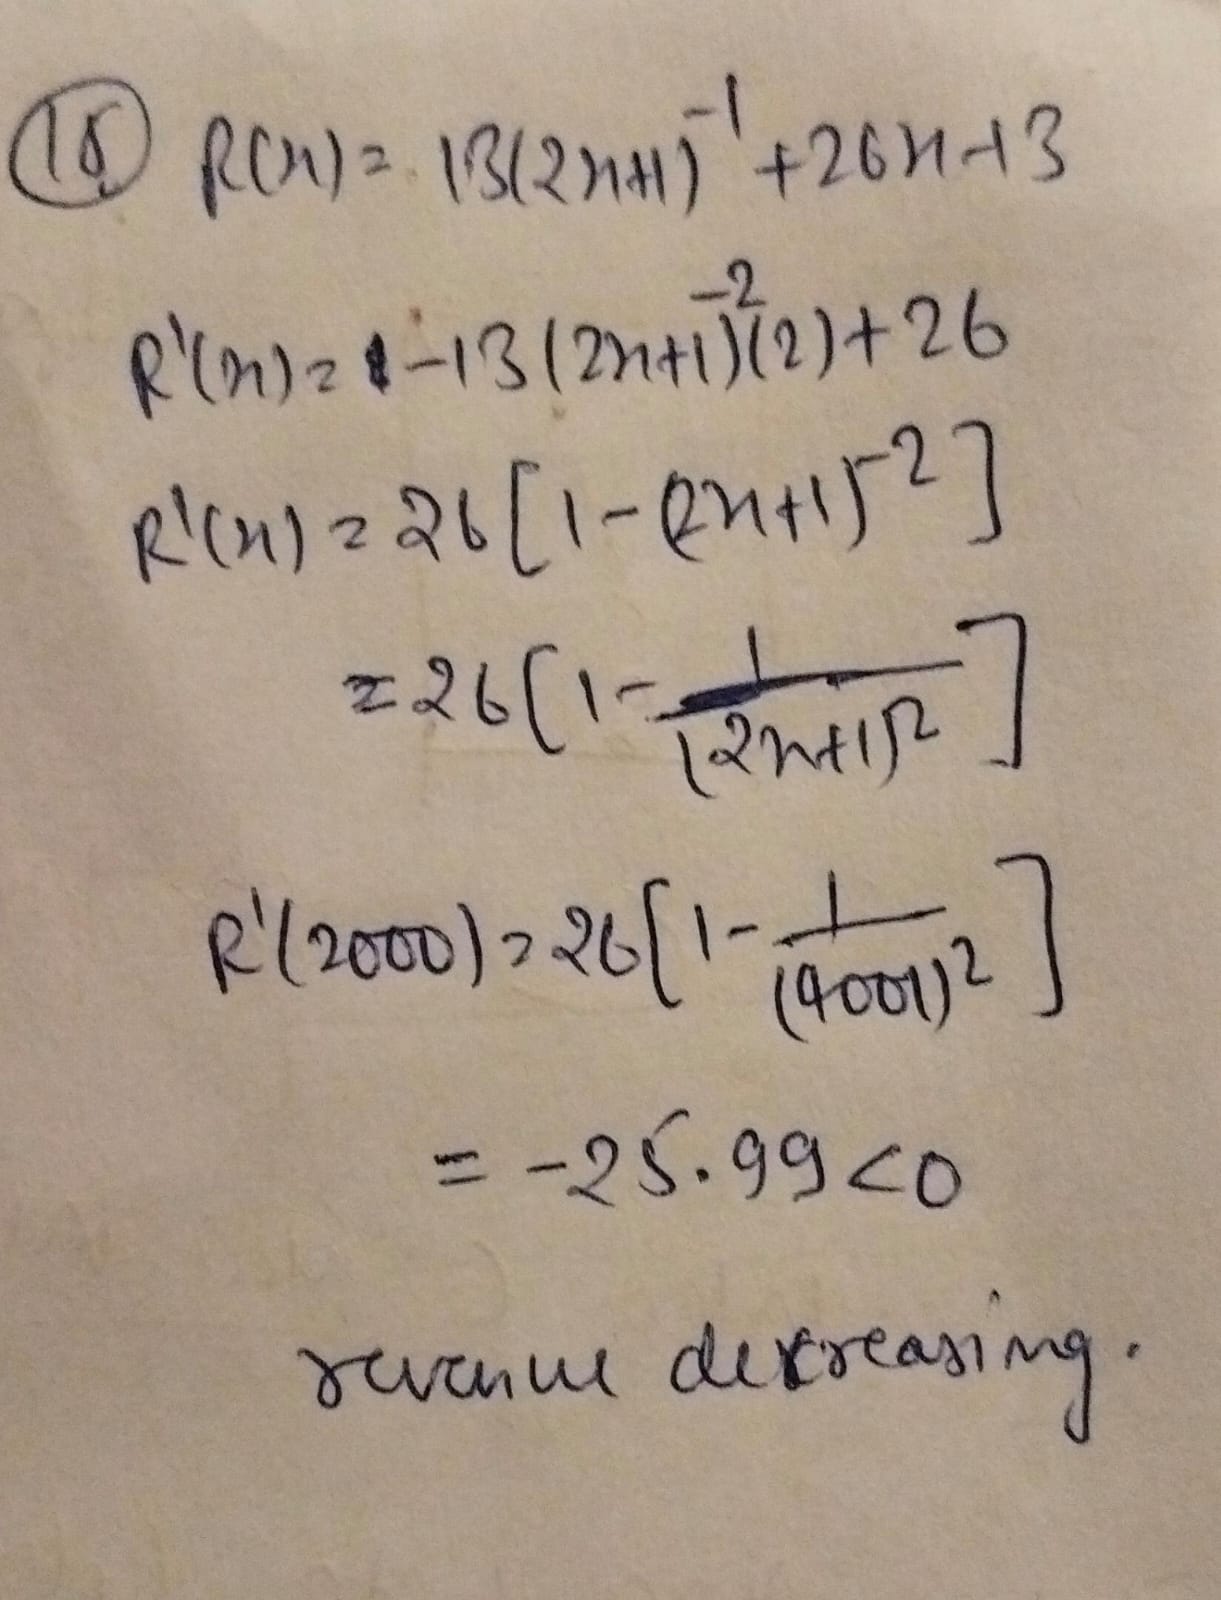 18 R(x) = 13(2x+1)^-1 + 26x-13
R'(x) = -13(2x+1)^-2 (2) + 26
R'(x) = 26 [1 - (2x+1)^-2]
= 26 [1 - 1/(2x+1)^2]
R'(2000) = 26 [1 - 1/(4001)^2]
= -25.99 < 0
revenue decreasing.